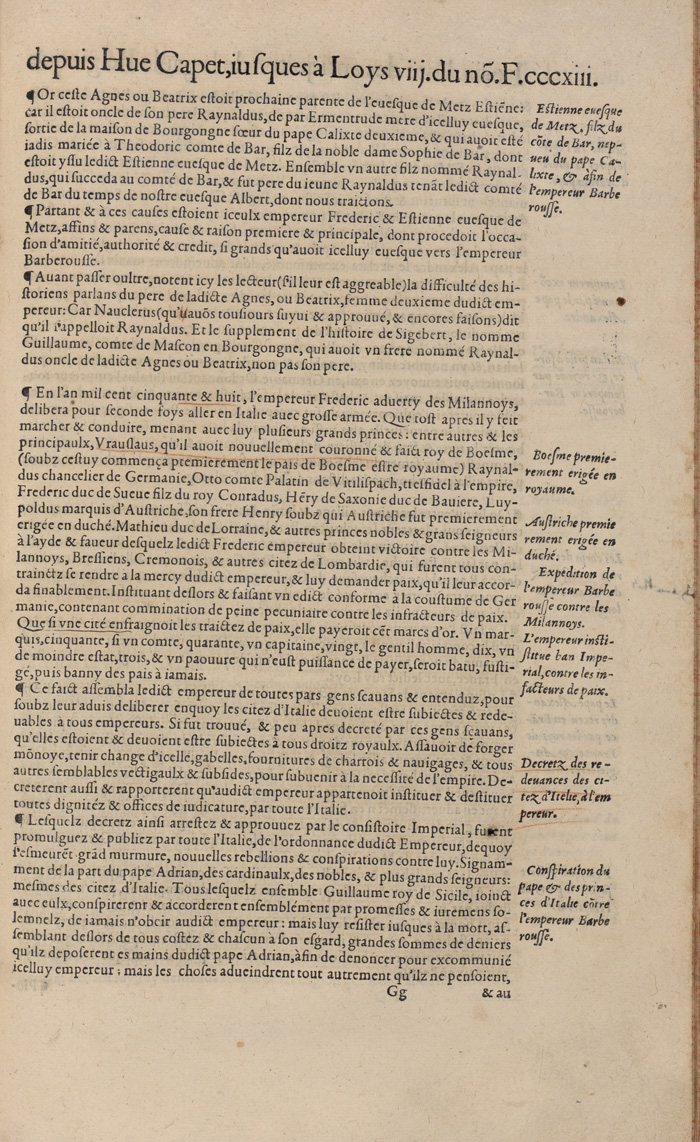 depuis Hue Capet,iuſques à Loys viij.du nō.F.cccxiii.
¶Or ceſte Agnes ou Beatrix eſtoit prochaine parente de l'eueſque de Metz Eſtiēne:
car il eſtoit oncle de ſon pere Raynaldus,de par Ermentrude mere d'icelluy eueſque,
ſortie de la maiſon de Bourgongne ſœur du pape Calixte deuxieme,& qui auoit eſté
iadis mariée à Theodoric comte de Bar, filz de la noble dame Sophie de Bar, dont
eſtoit yſſu ledict Eſtienne eueſque de Metz. Enſemble vn autre filz nommé Raynal-
dus,qui ſucceda au comté de Bar,& fut pere du ieune Raynaldus tenāt ledict comté
de Bar du temps de noſtre eueſque Albert,dont nous traictons.
Eſtienne eueſque
de Metz, filz du
cōte de Bar, nep-
ueu du pape Ca-
lixte, & afin de
l'empereur Barbe
rouſſe.
¶Partant & à ces cauſes eſtoient iceulx empereur Frederic & Eſtienne eueſque de
Metz,affins & parens,cauſe & raiſon premiere & principale, dont procedoit l'occa-
ſion d'amitié,authorité & credit, ſi grands qu'auoit icelluy eueſque vers l'empereur
Barberouſſe.
¶Auant paſſer oultre,notent icy les lecteur(ſ'il leur eſt aggreable)la difficulté des hi-
ſtoriens parlans du pere de ladicte Agnes, ou Beatrix,femme deuxieme dudict em-
pereur:Car Nauclerus(qu'auōs touſiours ſuyui & approuué, & encores faiſons)dit
qu'il ſ'appelloit Raynaldus. Et le ſupplement de l'hiſtoire de Sigebert, le nomme
Guillaume, comte de Maſcon en Bourgongne, qui auoit vn frere nommé Raynal-
dus oncle de ladicte Agnes ou Beatrix,non pas ſon pere.
¶ En l'an mil cent cinquante & huit, l'empereur Frederic aduerty des Milannoys,
delibera pour ſeconde foys aller en Italie auec groſſe armée. Que toſt apres il y feit
marcher & conduire, menant auec luy pluſieurs grands princes : entre autres & les
principaulx,Vraſlaus, qu'il auoit nouuellement couronné & faict roy de Boeſme,
(ſoubz ceſtuy commença premierement le pais de Boeſme eſtre royaume) Raynal-
dus chancelier de Germanie,Otto comte Palatin de Vitiliſpach,treſfidel à l'empire,
Frederic duc de Sueue filz du roy Conradus, Hēry de Saxonie duc de Bauiere, Luy-
poldus marquis d'Auſtriche,ſon frere Henry ſoubz qui Auſtriche fut premierement
erigée en duché.Mathieu duc de Lorraine,& autres princes nobles & grans ſeigneurs
à l'ayde & faueur deſquelz ledict Frederic empereur obteint victoire contre les Mi-
lannoys, Breſſiens, Cremonois, & autres citez de Lombardie, qui furent tous con-
trainctz ſe rendre à la mercy dudict empereur,& luy demander paix,qu'il leur accor-
da finablement. Inſtituant deſlors & faiſant vn edict conforme à la couſtume de Ger
manie,contenant commination de peine pecuniaire contre les infracteurs de paix.
Que ſi vne cité enfraignoit les traictez de paix,elle payeroit cēt marcs d'or. Vn mar-
quis,cinquante, ſi vn comte, quarante, vn capitaine,vingt, le gentil homme, dix, vn
de moindre eſtat,trois,& vn paouure qui n'euſt puiſſance de payer,ſeroit batu, fuſti-
gé,puis banny des pais à iamais.
Boeſme premie-
rement erigée en
royaume.
Auſtriche premie
rement erigée en
duché.
Expedition de
l'empereur Barbe
rouſſe contre les
Milannoys.
L'empereur inſti-
ſtitue ban Impe-
rial,contre les in-
facteurs de paix.
¶ Ce faict aſſembla ledict empereur de toutes pars gens ſcauans & entenduz,pour
ſoubz leur aduis deliberer enquoy les citez d'Italie deuoient eſtre ſubiectes & rede-
uables à tous empereurs. Si fut trouué, & peu apres decreté par ces gens ſcauans,
qu'elles eſtoient & deuoient eſtre ſubiectes à tous droitz royaulx. Aſſauoir de forger
mōnoye,tenir change d'icelle,gabelles,fournitures de chartois & nauigages, & tous
autres ſemblables vectigaulx & ſubſides,pour ſubuenir à la neceſſité de l'empire. De-
creterent auſſi & rapporterent qu'audict empereur appartenoit inſtituer & deſtituer
toutes dignitéz & offices de iudicature,par toute l'Italie.
Decretz des re-
deuances des ci-
tez d'Italie, à l'em
pereur.
¶ Leſquelz decretz ainſi arreſtez & approuuez par le conſiſtoire Imperial, furent
promulguez & publiez par toute l'Italie,de l'ordonnance dudict Empereur,dequoy
ſ'eſmeurēt grād murmure, nouuelles rebellions & conſpirations contre luy.Signam-
ment de la part du pape Adrian,des cardinaulx,des nobles, & plus grands ſeigneurs:
meſmes des citez d'Italie. Tous leſquelz enſemble Guillaume roy de Sicile, ioinct
auec eulx,conſpirerent & accorderent enſemblément par promeſſes & iuremens ſo-
lemnelz, de iamais n'obeir audict empereur : mais luy reſiſter iuſques à la mort, aſ-
ſemblant deſlors de tous coſtez & chaſcun à ſon eſgard, grandes ſommes de deniers
qu'ilz depoſerent es mains dudict pape Adrian,àfin de denoncer pour excommunié
icelluy empereur ; mais les choſes adueindrent tout autrement qu'ilz ne penſoient,
Conſpiration du
pape & des prin-
ces d'Italie cōtre
l'empereur Barbe
rouſſe.
Gg & au